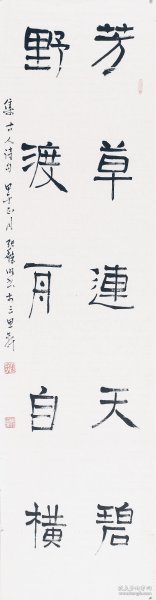 芳草連天碧
野渡舟自橫
集古人詩句 甲子正月